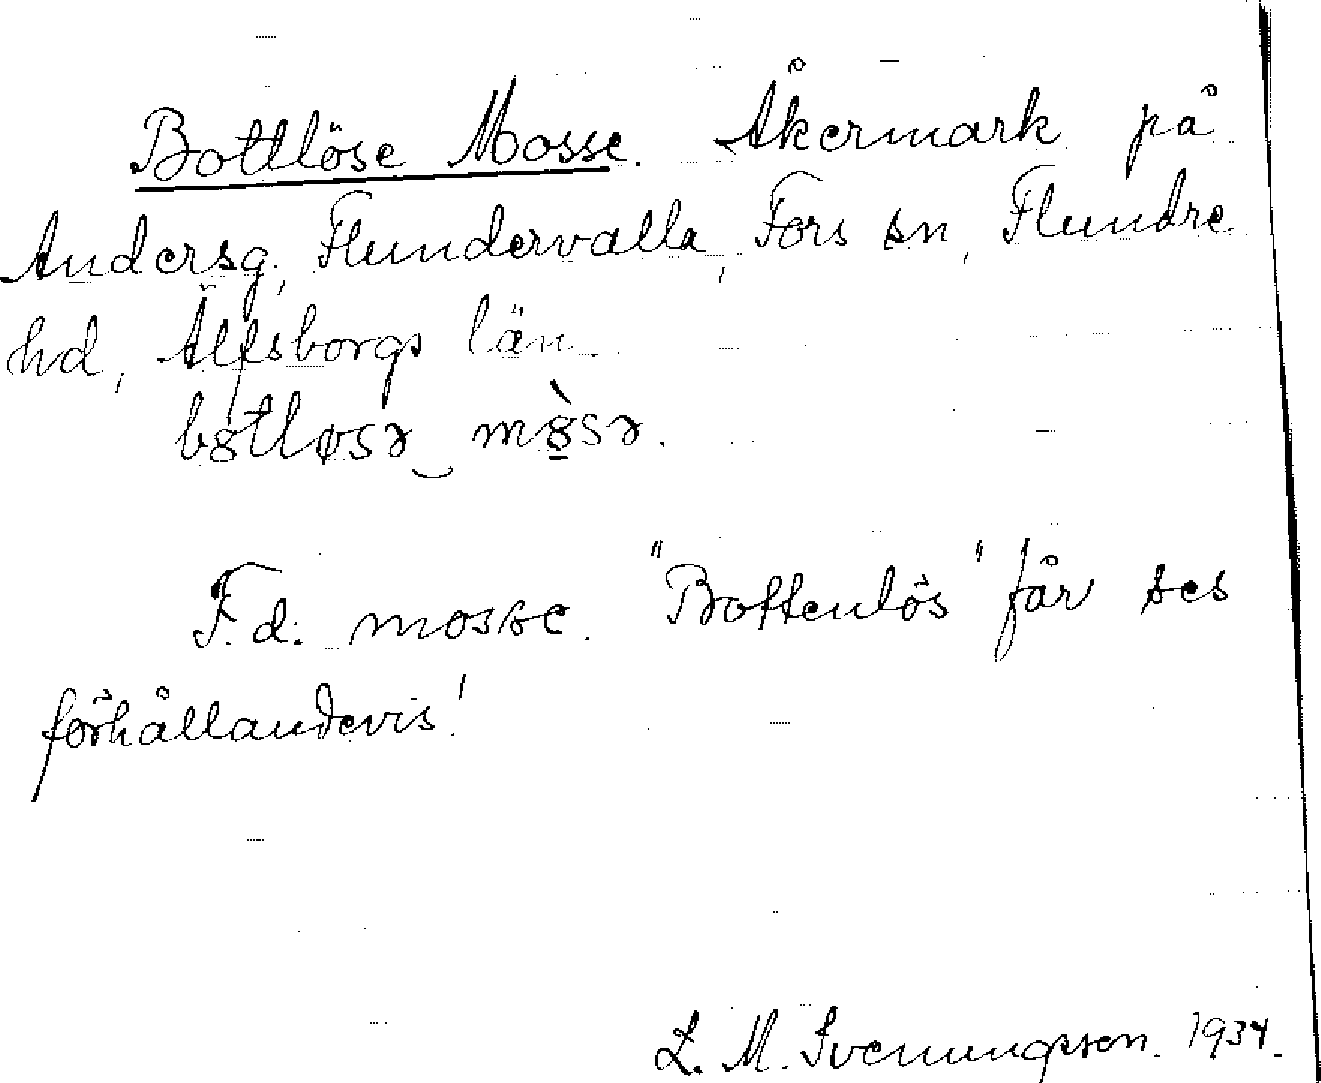 Bottlöse Mosse. Åkermark på
Andersg, Flundervalla, Fors sn, Flundre
hd, Älfsborgs län.
b8tløsə m8̀sə.
F.d. mosse. "Bottenlös" får ses
förhållandevis!
L. M. Svenungsson. 1934.